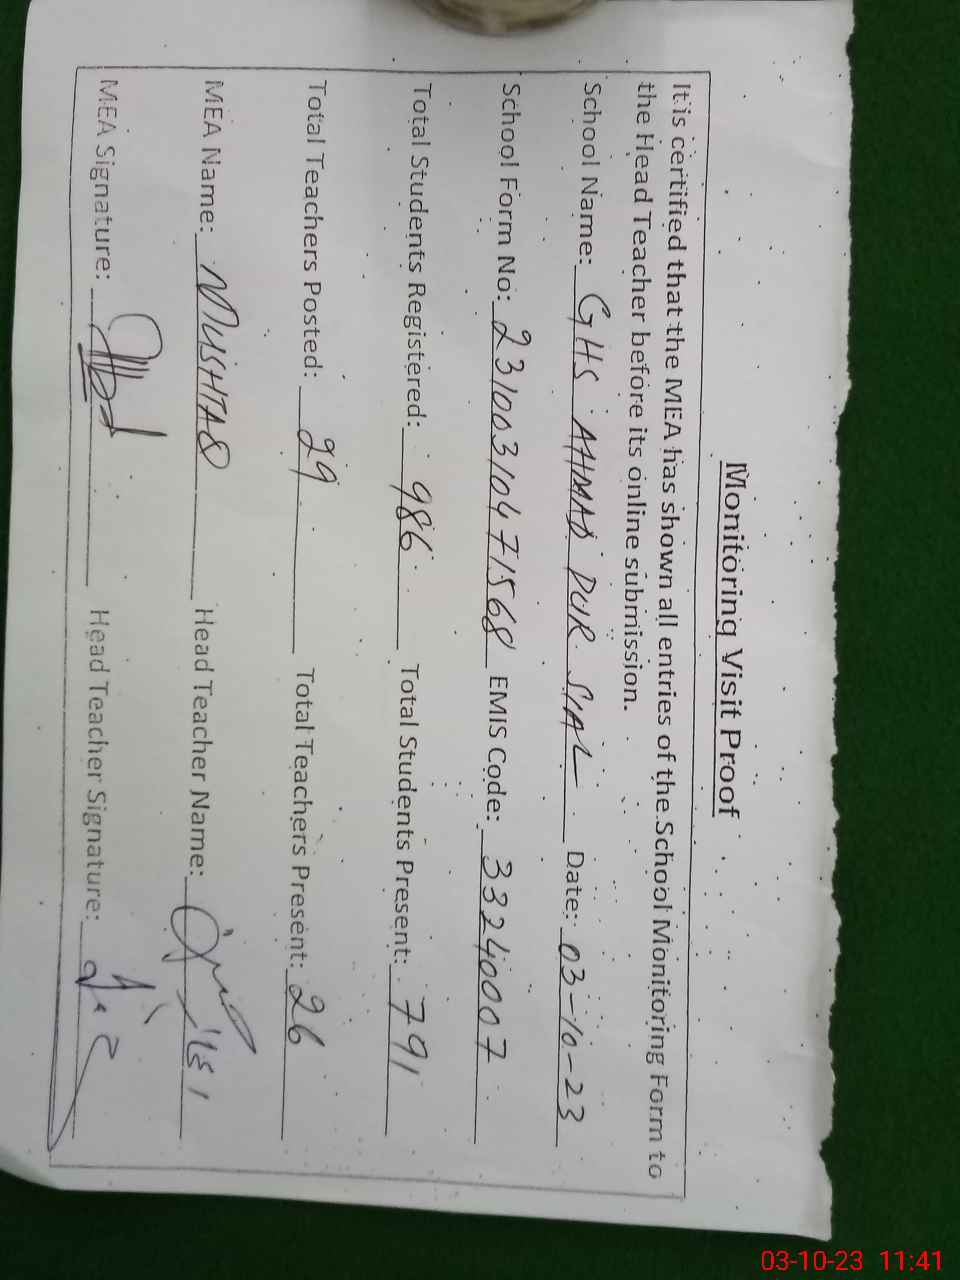 Monitoring Visit Proof
It is certified that the MEA has shown all entries of the School Monitoring Form to
the Head Teacher before its online submission.
School Name: GHS AHMAD PUR SIAL Date: 03-10-23
School Form No: 23100310471568 EMIS Code: 33240007
Total Students Registered: 986 Total Students Present: 791
Total Teachers Posted: 29 Total Teachers Present: 26
MEA Name: MUSHTAQ Head Teacher Name:
MEA Signature: Head Teacher Signature:
03-10-23 11:41